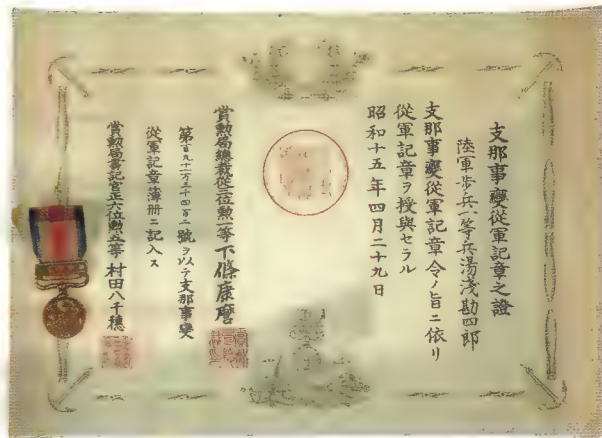 支那事變從軍記章之證
陸軍歩兵一等兵湯浅勘四郎
支那事變從軍記章令ノ旨ニ依リ
從軍記章ヲ授與セラル
昭和十五年四月二十九日
賞勲局總裁從三位勲一等下條康麿
號ヲ以テ支那事變
從軍記章簿册ニ記入ス
賞勲局書記官正六位勲五等村田八千穂